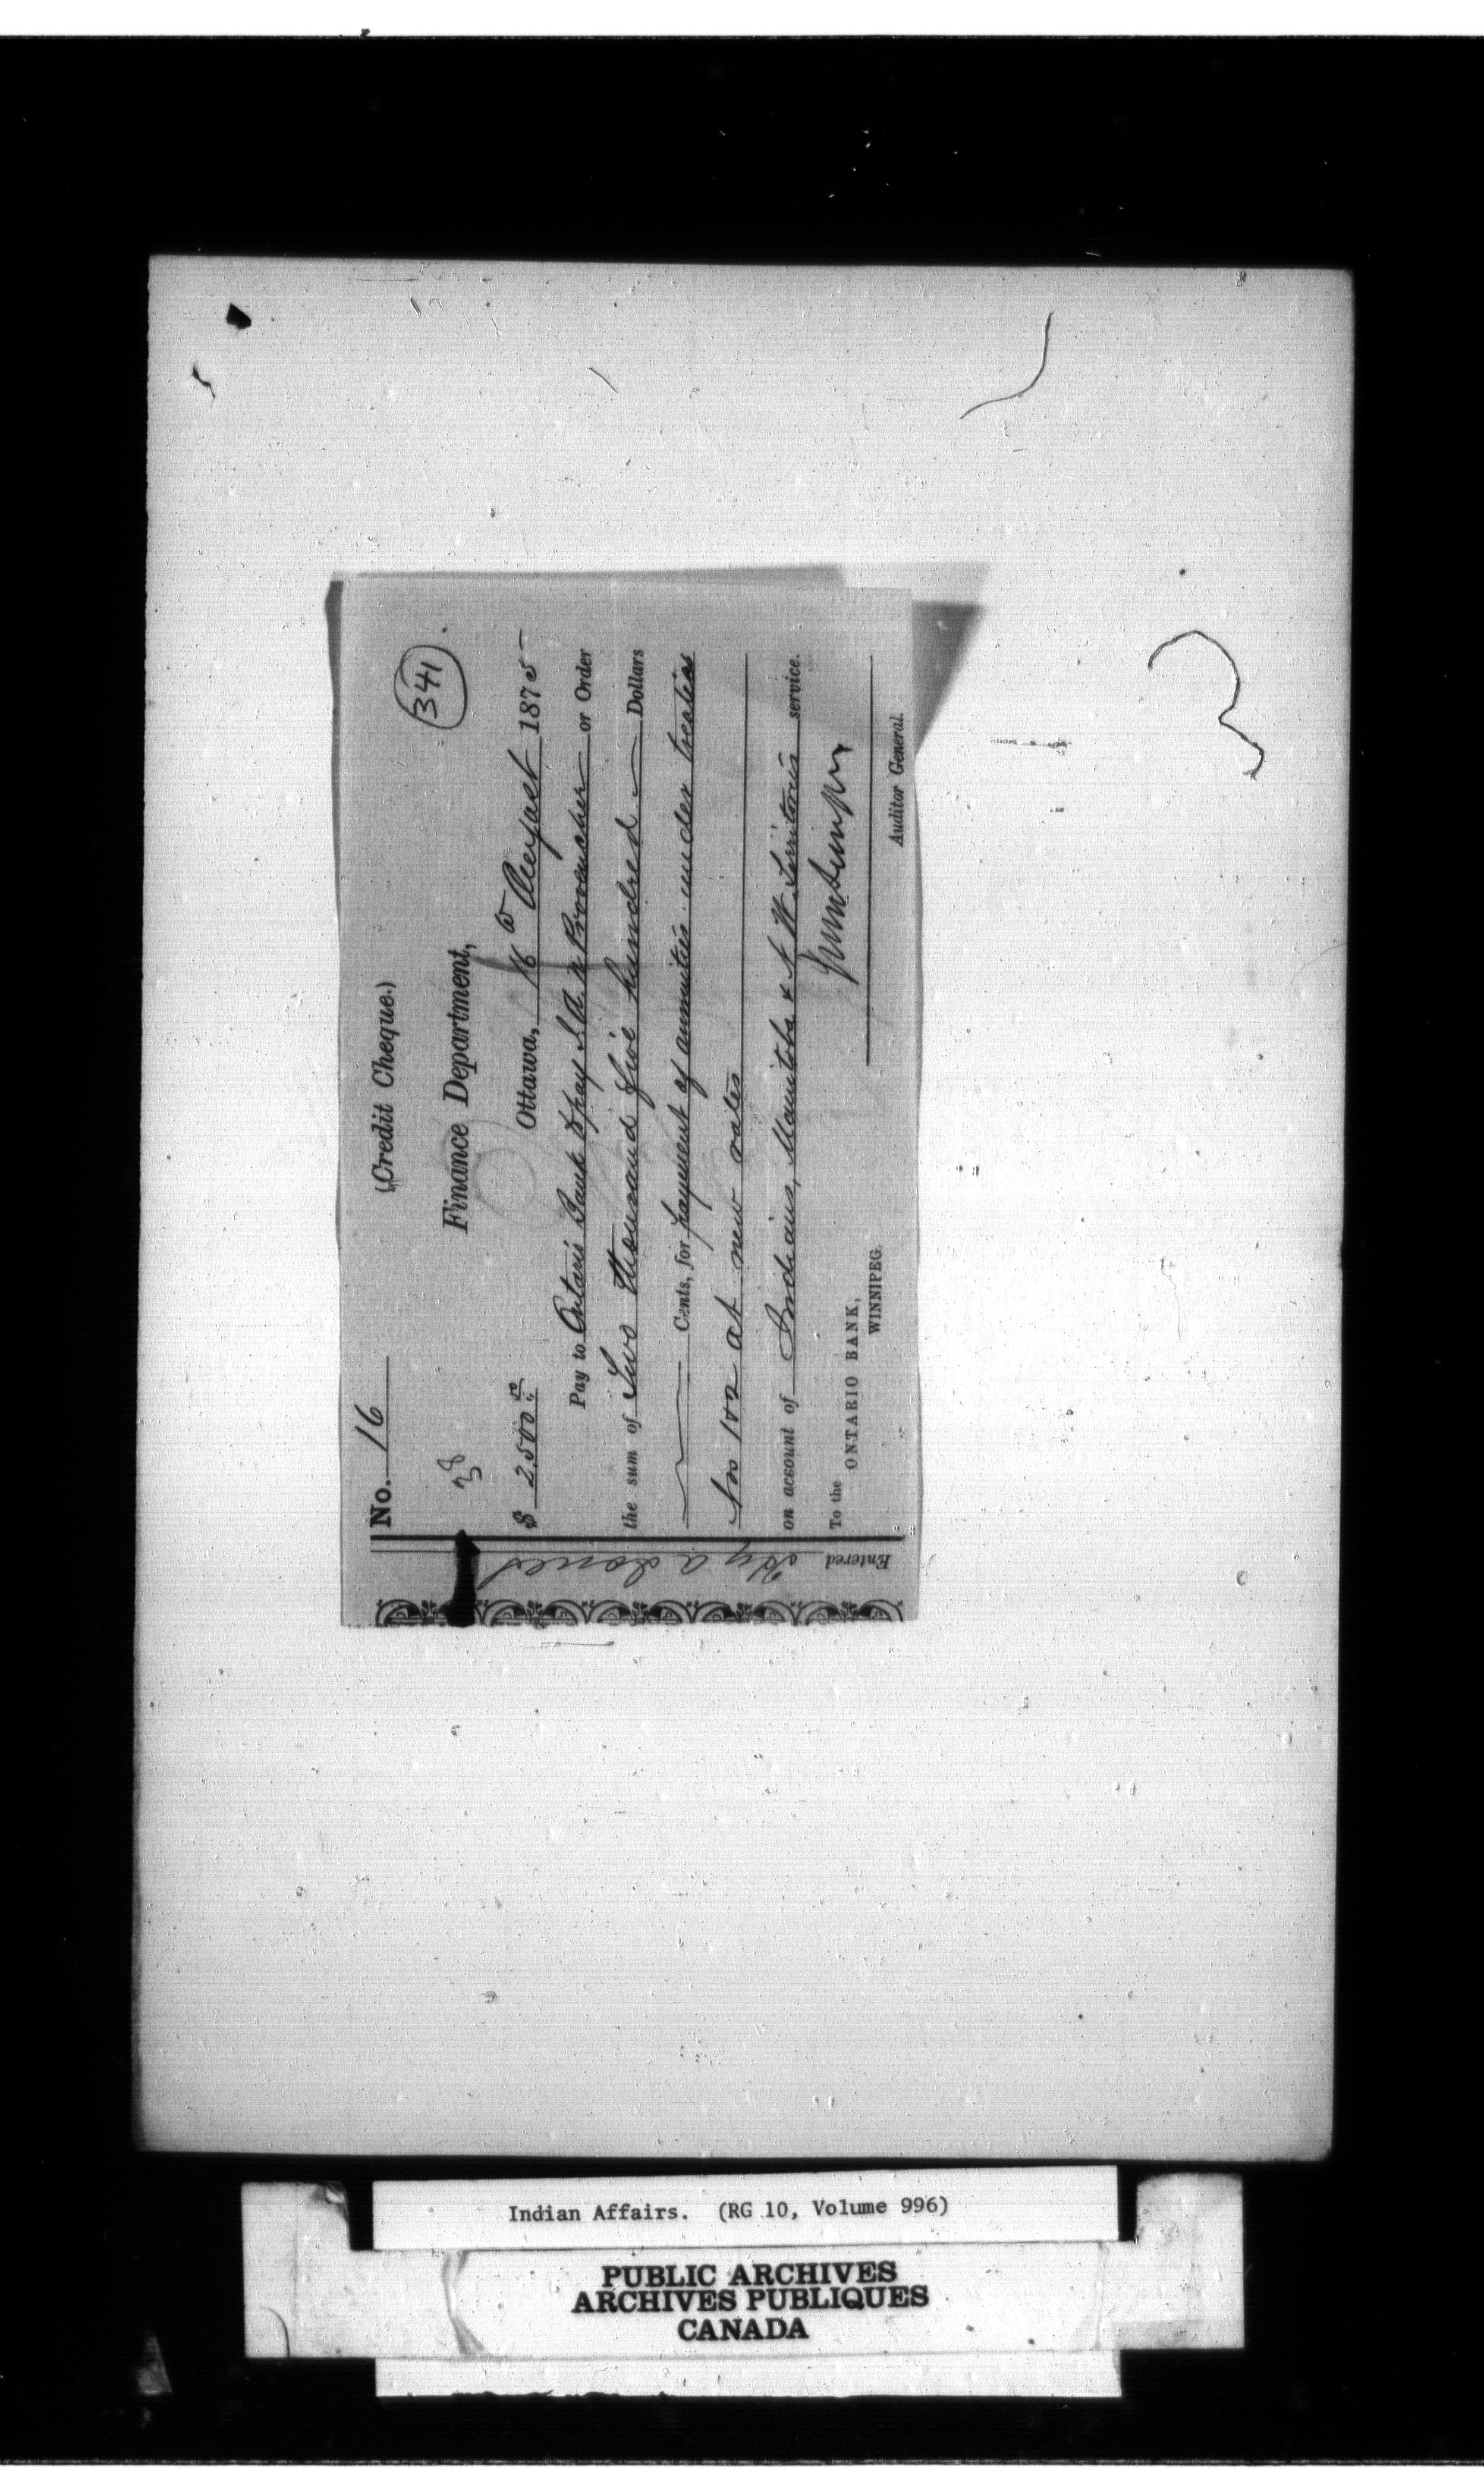 No. 16
(Credit Cheque.)
341
38
Finance Department,
$ 2.500 00
Ottawa, August 1875
Pay to Ontario Bank to pay J. A. N. Provencher or Order
the sum of Two thousand five hundred Dollars
Cents, for payment of annuities under treaties
Nos 1 & 2 at new rates
on account of Indians, Manitoba & N. W. Territories service.
To the
ONTARIO BANK,
WINNIPEG.
Auditor General.
Entered
Indian Affairs. (RG 10, Volume 996)
PUBLIC ARCHIVES
ARCHIVES PUBLIQUES
CANADA